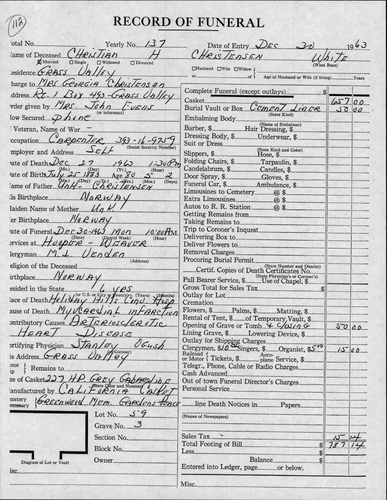 112
RECORD OF FUNERAL
otal No. Yearly No. 137 Date of Entry Dec 30 1963
ame of Deceased Christian H Christensen White
Married Single Widowed Divorced Husband Wife Widow Age of Husband or Wife (if living) Years
Residence Grass Valley
harge to Mrs Georgia Christensen
ddress Rt. 1 Box 493 - Grass Valley
rder given by Mrs. John Evens
ow Secured Phone
Veteran, Name of War
ccupation Carpenter 393-16-9759
(Social Security Number)
mployer and Address Self
ate of Death Dec 27 1963 1:30 PM
ate of Birth July 25 1883 Age 80 5 2
ame of Father Unk - Christensen
is Birthplace Norway
aiden Name of Mother Unk
er Birthplace Norway
ate of Funeral Dec-30-1963 Mon 10:00 AM
ervices at Hooper - Weaver
lergyman M.L. Venden
eligion of the Deceased
irthplace Norway
esided in the State 6 yrs
lace of Death
ause of Death Myocardial infarction
ontributory Causes Arteriosclerotic
Heart Disease
ertifying Physician Stanley
is Address Grass Valley
Remains to
ze of Casket 227 HP Grey
anufactured by California Casket
metery Greenwood Mem. Gardens
Lot No. 59
Grave No. 3
Section No.
Block No.
Owner
Diagram of Lot or Vault
Misc.
Complete Funeral (except outlays) $
Casket 657 00
Burial Vault or Box Cement Liner 50 00
(State Kind)
Embalming Body
Barber, $ Hair Dressing, $
Dressing Body, $ Underwear, $
Suit or Dress
(State Kind and Color)
Slippers, $ Hose, $
Folding Chairs, $ Tarpaulin, $
Candelabrum, $ Candles, $
Door Spray, $ Gloves, $
Funeral Car, $ Ambulance, $
Limousines to Cemetery @ $
Extra Limousines @ $
Autos to R. R. Station @ $
Getting Remains from
Taking Remains to
Trip to Coroner's Inquest
Delivering Box to
Deliver Flowers to
Removal Charges
Procuring Burial Permit
(State Number and District)
Certif. Copies of Death Certificates No.
(State Physician's or Coroner's)
Pall Bearer Service, $ Use of Chapel, $
Gross to Total Cost $
Outlay for Lot
Cremation
Flowers, $ Palms, $ Matting, $
Rental of Tent, $ of Temporary, Vault, $
Opening of Grave or Tomb & Closing 50 00
Lining Grave, $ Lowering Device, $
Outlay for Shipping Charges
Clergyman, $10.00 Singers, $ Organist, $5.00 15 00
Railroad or Motor Tickets, $ Aeroplane Service, $
Telegr., Phone, Cable or Radio Charges
Cash Advanced
Out of town Funeral Director's Charges
Personal Service
line Death Notices in Papers
(Names of Newspapers)
Sales Tax 15 14
Total Footing of Bill $ 787 14
Less $
Balance $
Entered into Ledger, page or below.